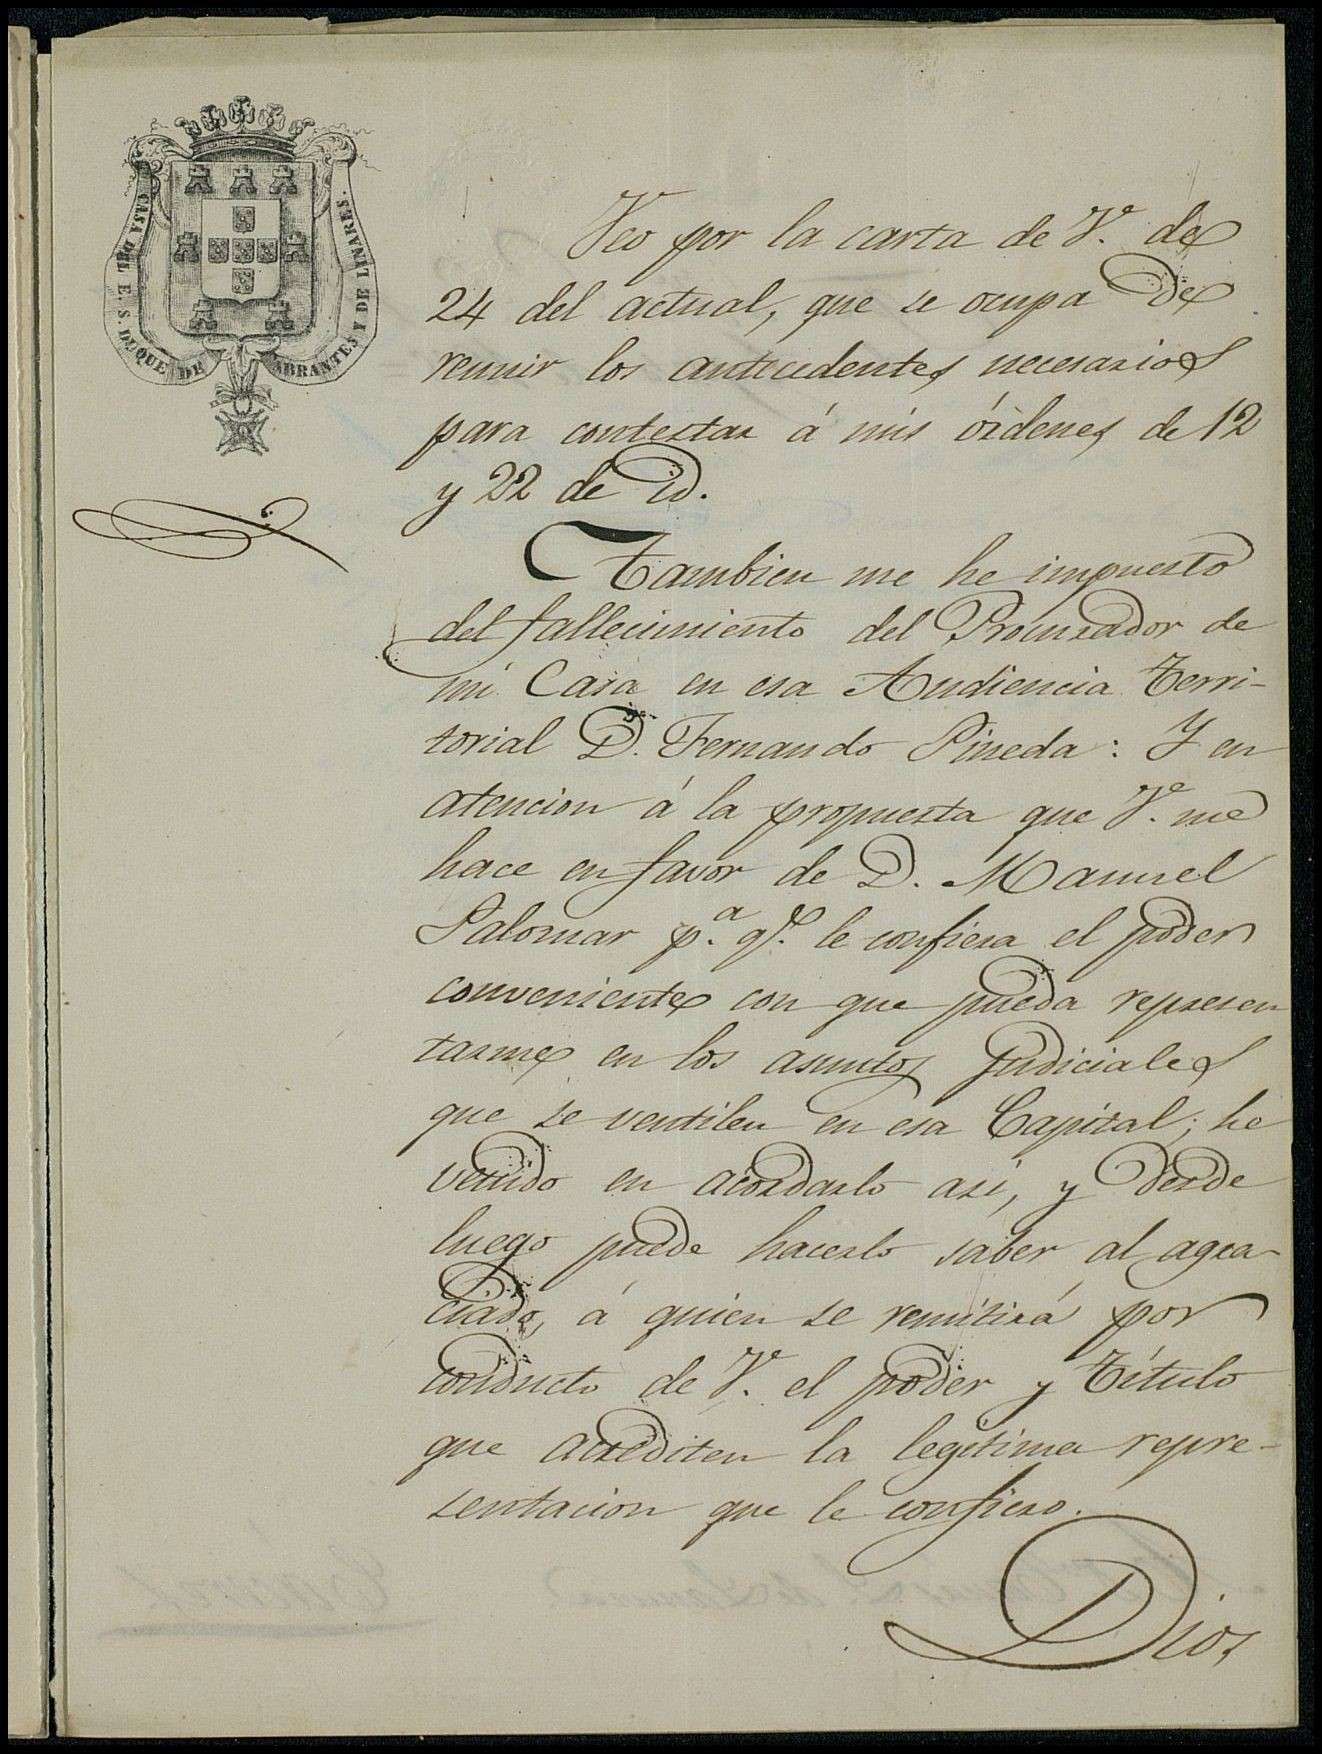 CASA DEL E. S. DUQUE DE ABRANTES Y DE LINARES.
Veo por la carta de V. de
24 del actual, que se ocupa de
reunir los antecedentes necesarios
para contestar á mis órdenes de 12
y 22 de id.
Tambien me he impuesto
del fallecimiento del Procurador de
mi Casa en esa Audiencia Terri-
torial D. Fernando Pineda: Y en
atencion á la propuesta que V. me
hace en favor de D. Manuel
Palomar p.ª q.e le confiera el poder
conveniente con que pueda represen
tarme en los asuntos judiciales
que se ventilen en esa Capital; he
venido en acordarlo asi, y desde
luego puede hacerlo saber al agra-
ciado, á quien se remitirá por
conducto de V. el poder y Título
que acrediten la legítima repre-
sentacion que le confiero.
Dios